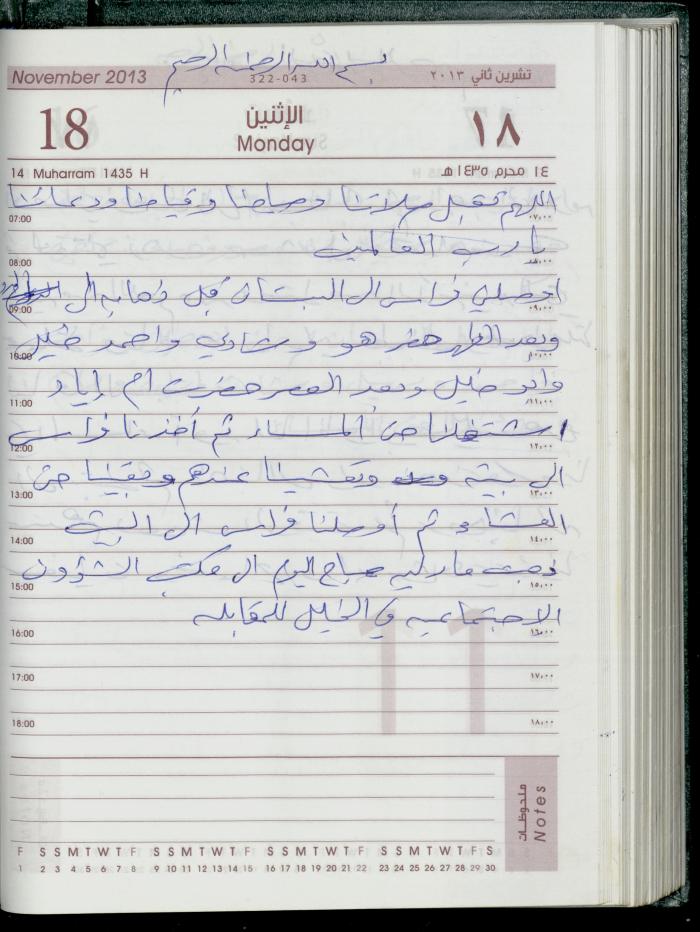 بسم الله الرحمن الرحيم
November 2013
322-043
تشرين ثاني ٢٠١٣
18
الإثنين
Monday
١٨
14 Muharram 1435 H
١٤ محرم ١٤٣٥ هـ
اللهم تقبل صلاتنا وصيامنا وقيامنا ودعائنا
07:00 ٠٧:٠٠
يا رب العالمين
08:00 ٠٨:٠٠
اوصلني فراس الى البستان قبل ذهابه الى
09:00 ٠٩:٠٠
وبعد الظهر حضر هو وشادي واحمد خليل
10:00 ١٠:٠٠
وابو خليل وبعد العصر حضرت ام إياد
11:00 ١١:٠٠
اشتغلنا حتى المساء ثم أخذنا فراس
12:00 ١٢:٠٠
الى بيته وتعشينا عندهم وبقينا حتى
13:00 ١٣:٠٠
العشاء ثم أوصلنا فراس الى البيت
14:00 ١٤:٠٠
ذهبت صباح اليوم الى مكتب الشؤون
15:00 ١٥:٠٠
الاجتماعيه في الخليل للمقابله
16:00 ١٦:٠٠
17:00 ١٧:٠٠
18:00 ١٨:٠٠
11
ملحوظات
Notes
F S S M T W T F S S M T W T F S S M T W T F S S M T W T F S
1 2 3 4 5 6 7 8 9 10 11 12 13 14 15 16 17 18 19 20 21 22 23 24 25 26 27 28 29 30